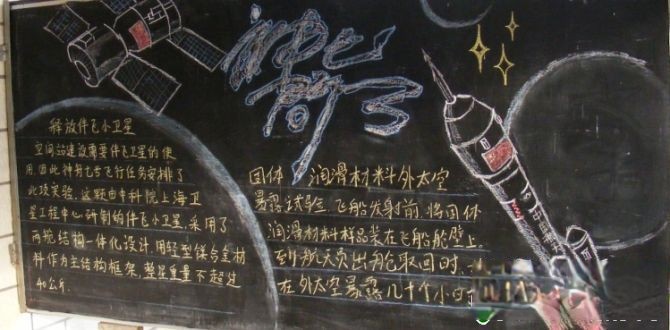 释放伴飞小卫星
空间站建设需要伴飞卫星的使
用,因此神舟七号飞行任务安排了
此项实验.这颗由中科院上海卫
星工程中心研制的伴飞小卫星,采用了
两舱结构一体化设计.用轻型镁合金材
料作为主结构框架,整星重量不超过
40公斤.
固体 润滑材料外太空
暴露试验 飞船发射前,将固体
润滑材料样品装在飞船舱壁上,
到航天员出舱取回时,
在外太空暴露几十个小时